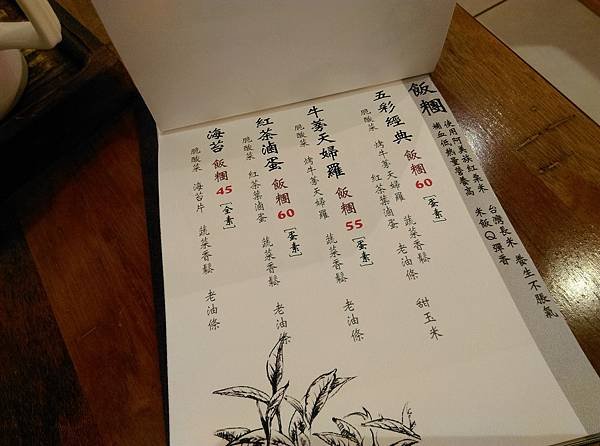 飯糰
使用阿美族紅糯米 台灣長米 養生不脹氣
補血低熱量營養高 米飯Q彈香
五彩經典 飯糰 60 [蛋素]
脆酸菜 烤牛蒡天婦羅 紅茶葉滷蛋 蔬菜香鬆 老油條 甜玉米
牛蒡天婦羅 飯糰 55 [蛋素]
脆酸菜 烤牛蒡天婦羅 蔬菜香鬆 老油條
紅茶滷蛋 飯糰 60 [蛋素]
脆酸菜 紅茶葉滷蛋 蔬菜香鬆 老油條
海苔 飯糰 45 [全素]
脆酸菜 海苔片 蔬菜香鬆 老油條